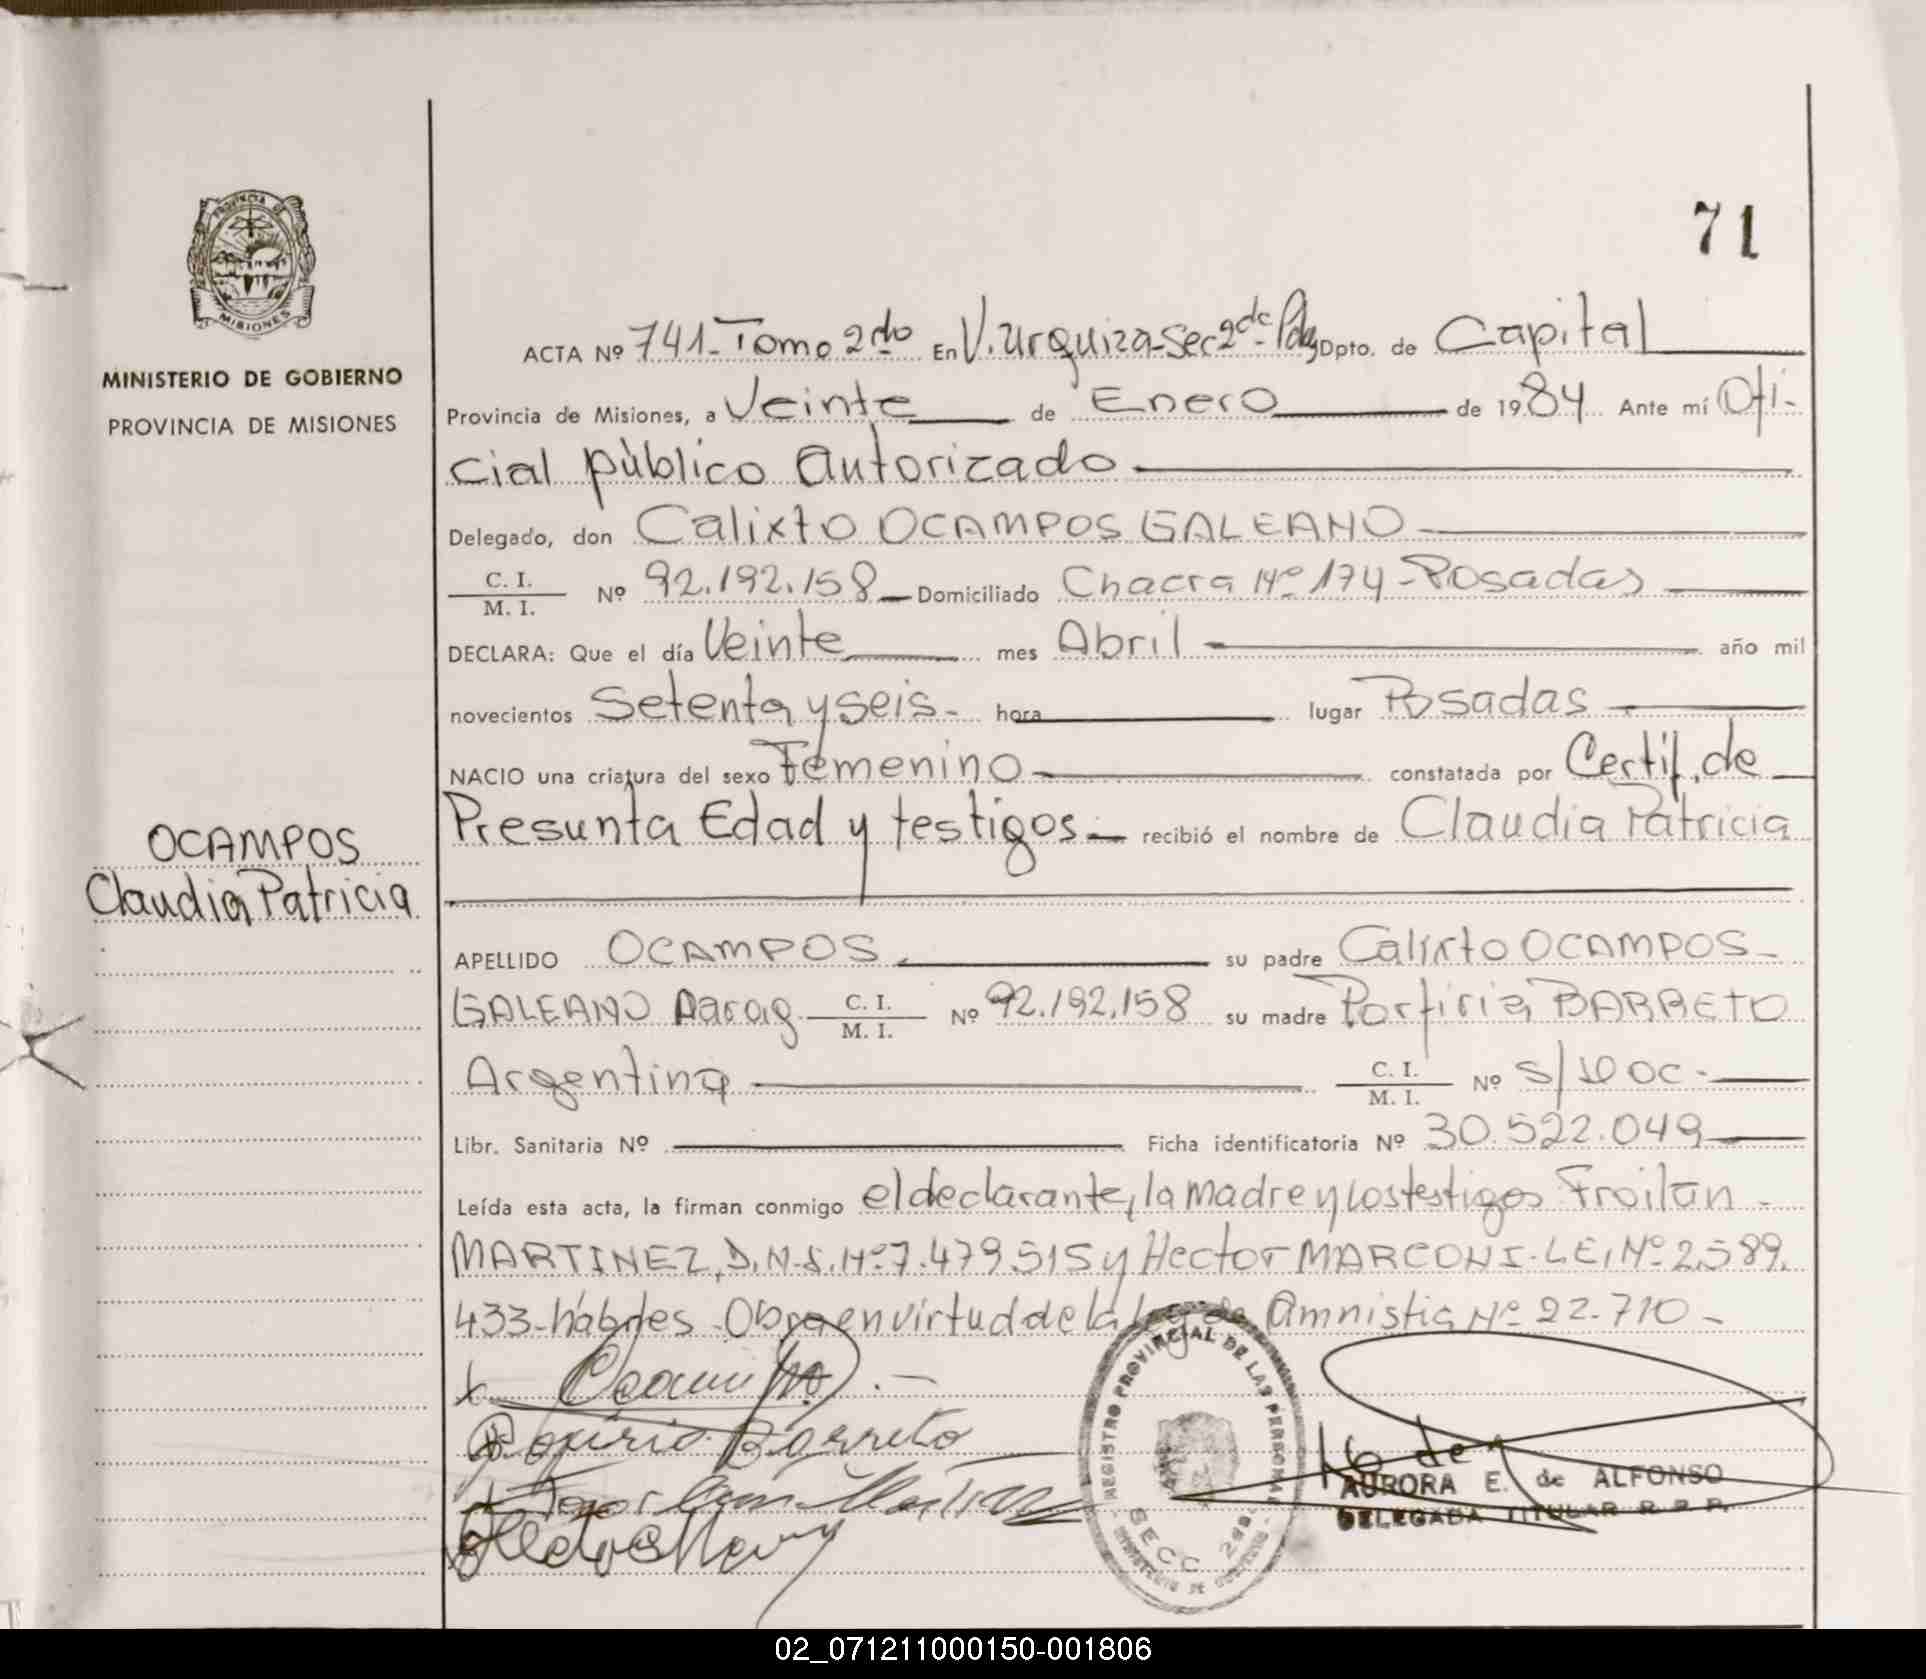 71
PROVINCIA DE
MISIONES
MINISTERIO DE GOBIERNO
PROVINCIA DE MISIONES
ACTA Nº 741-Tomo 2do En V. Urquiza-Sec 2da- Pdas Dpto. de Capital
Provincia de Misiones, a Veinte de Enero de 1984 Ante mí Ofi-
cial público Autorizado
Delegado, don Calixto OCAMPOS GALEANO
C. I.
M. I. Nº 92.192.158 Domiciliado Chacra Nº 174-Posadas
DECLARA: Que el día Veinte mes Abril año mil
novecientos Setenta y seis- hora lugar Posadas
NACIO una criatura del sexo Femenino constatada por Certif. de
Presunta Edad y testigos recibió el nombre de Claudia Patricia
OCAMPOS
Claudia Patricia
APELLIDO OCAMPOS su padre Calixto OCAMPOS-
GALEANO Parag. C. I.
M. I. Nº 92.192.158 su madre Porfiria BARRETO
Argentina C. I.
M. I. Nº S/Doc.-
Libr. Sanitaria Nº Ficha identificatoria Nº 30.522.049
Leída esta acta, la firman conmigo el declarante, la madre y los testigos Froilan -
MARTINEZ, D.N.I. Nº 7.479.515 y Hector MARCONI- LE, Nº 2.589.
433-hábiles -Obra en virtud de la Ley de Amnistia Nº 22.710 -
Porfiria Barreto
REGISTRO PROVINCIAL DE LAS PERSONAS
SECC. 2da.
MINISTERIO DE GOBIERNO
AURORA E. de ALFONSO
DELEGADA TITULAR R. P. P.
02_071211000150-001806